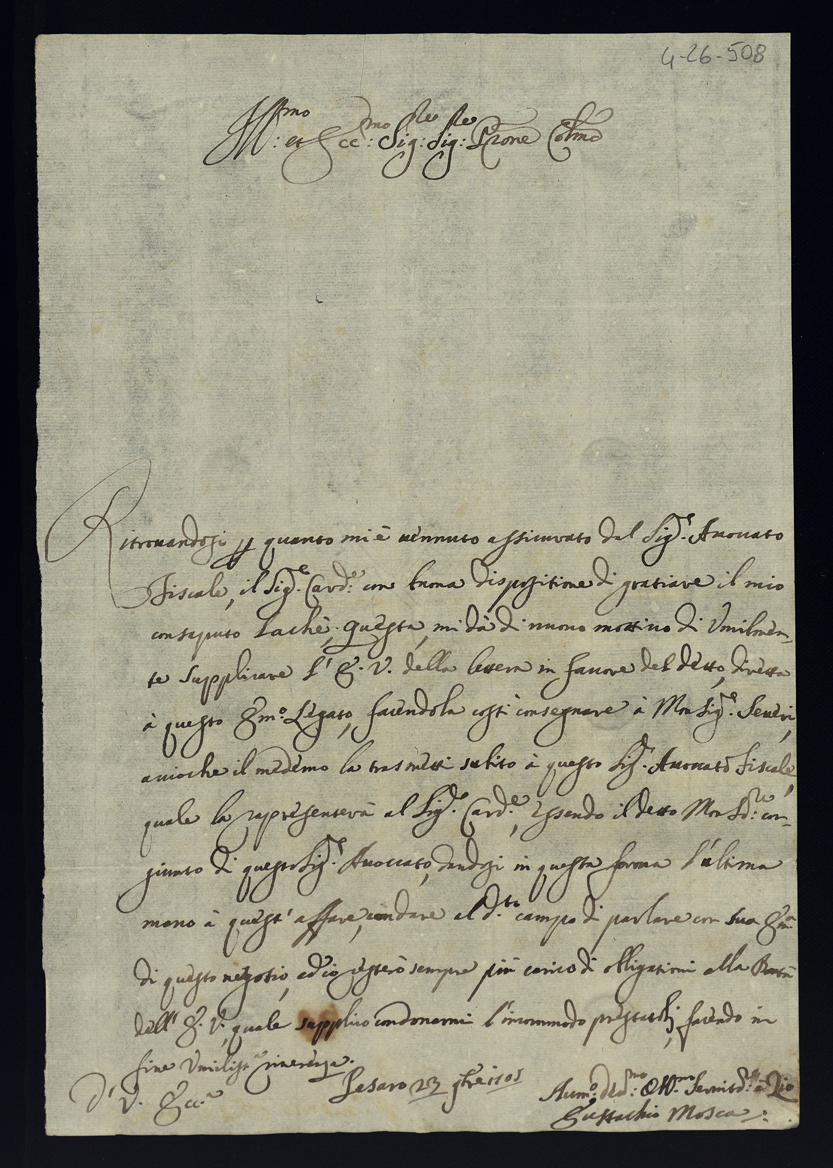 4-26-508
Ill:mo et Ecc:mo Sig:re Sig:re Prone Colmo
Ritrovandosi p quanto mi è vennuto assicurato dal Sig.e Avvocato
Fiscale, il Sig.e Card.e con buona dispositione di gratiare il mio
consaputo Lachè, questa, mi dà di nuovo mottivo di Umilmen-
te supplicare l' E. V. della lettera in favore del detto, diretta
à questo Emo Legato, facendola costì consegnare à MonSig.e Severi,
acciòche il medemo la trasmetti subito à questo Sig.e Avvocato Fiscale,
quale la rapresenterà al Sig.e Card.e, essendo il detto Mon con-
giunto di questo Sig.e Avvocato, dandosi in questa forma l'ultima
mano à quest' affare, con dare al d.to campo di parlare con sua Em.a
di questo negotio, ed io resterò sempre più carico di obligationi alla Bontà
dell' E. V., quale supplico condonarmi l'incommodo prestatoli, facendo in
fine Umiliss.a riverenza.
D' V. Ecc.a
Pesaro 23
Eustachio Mosca